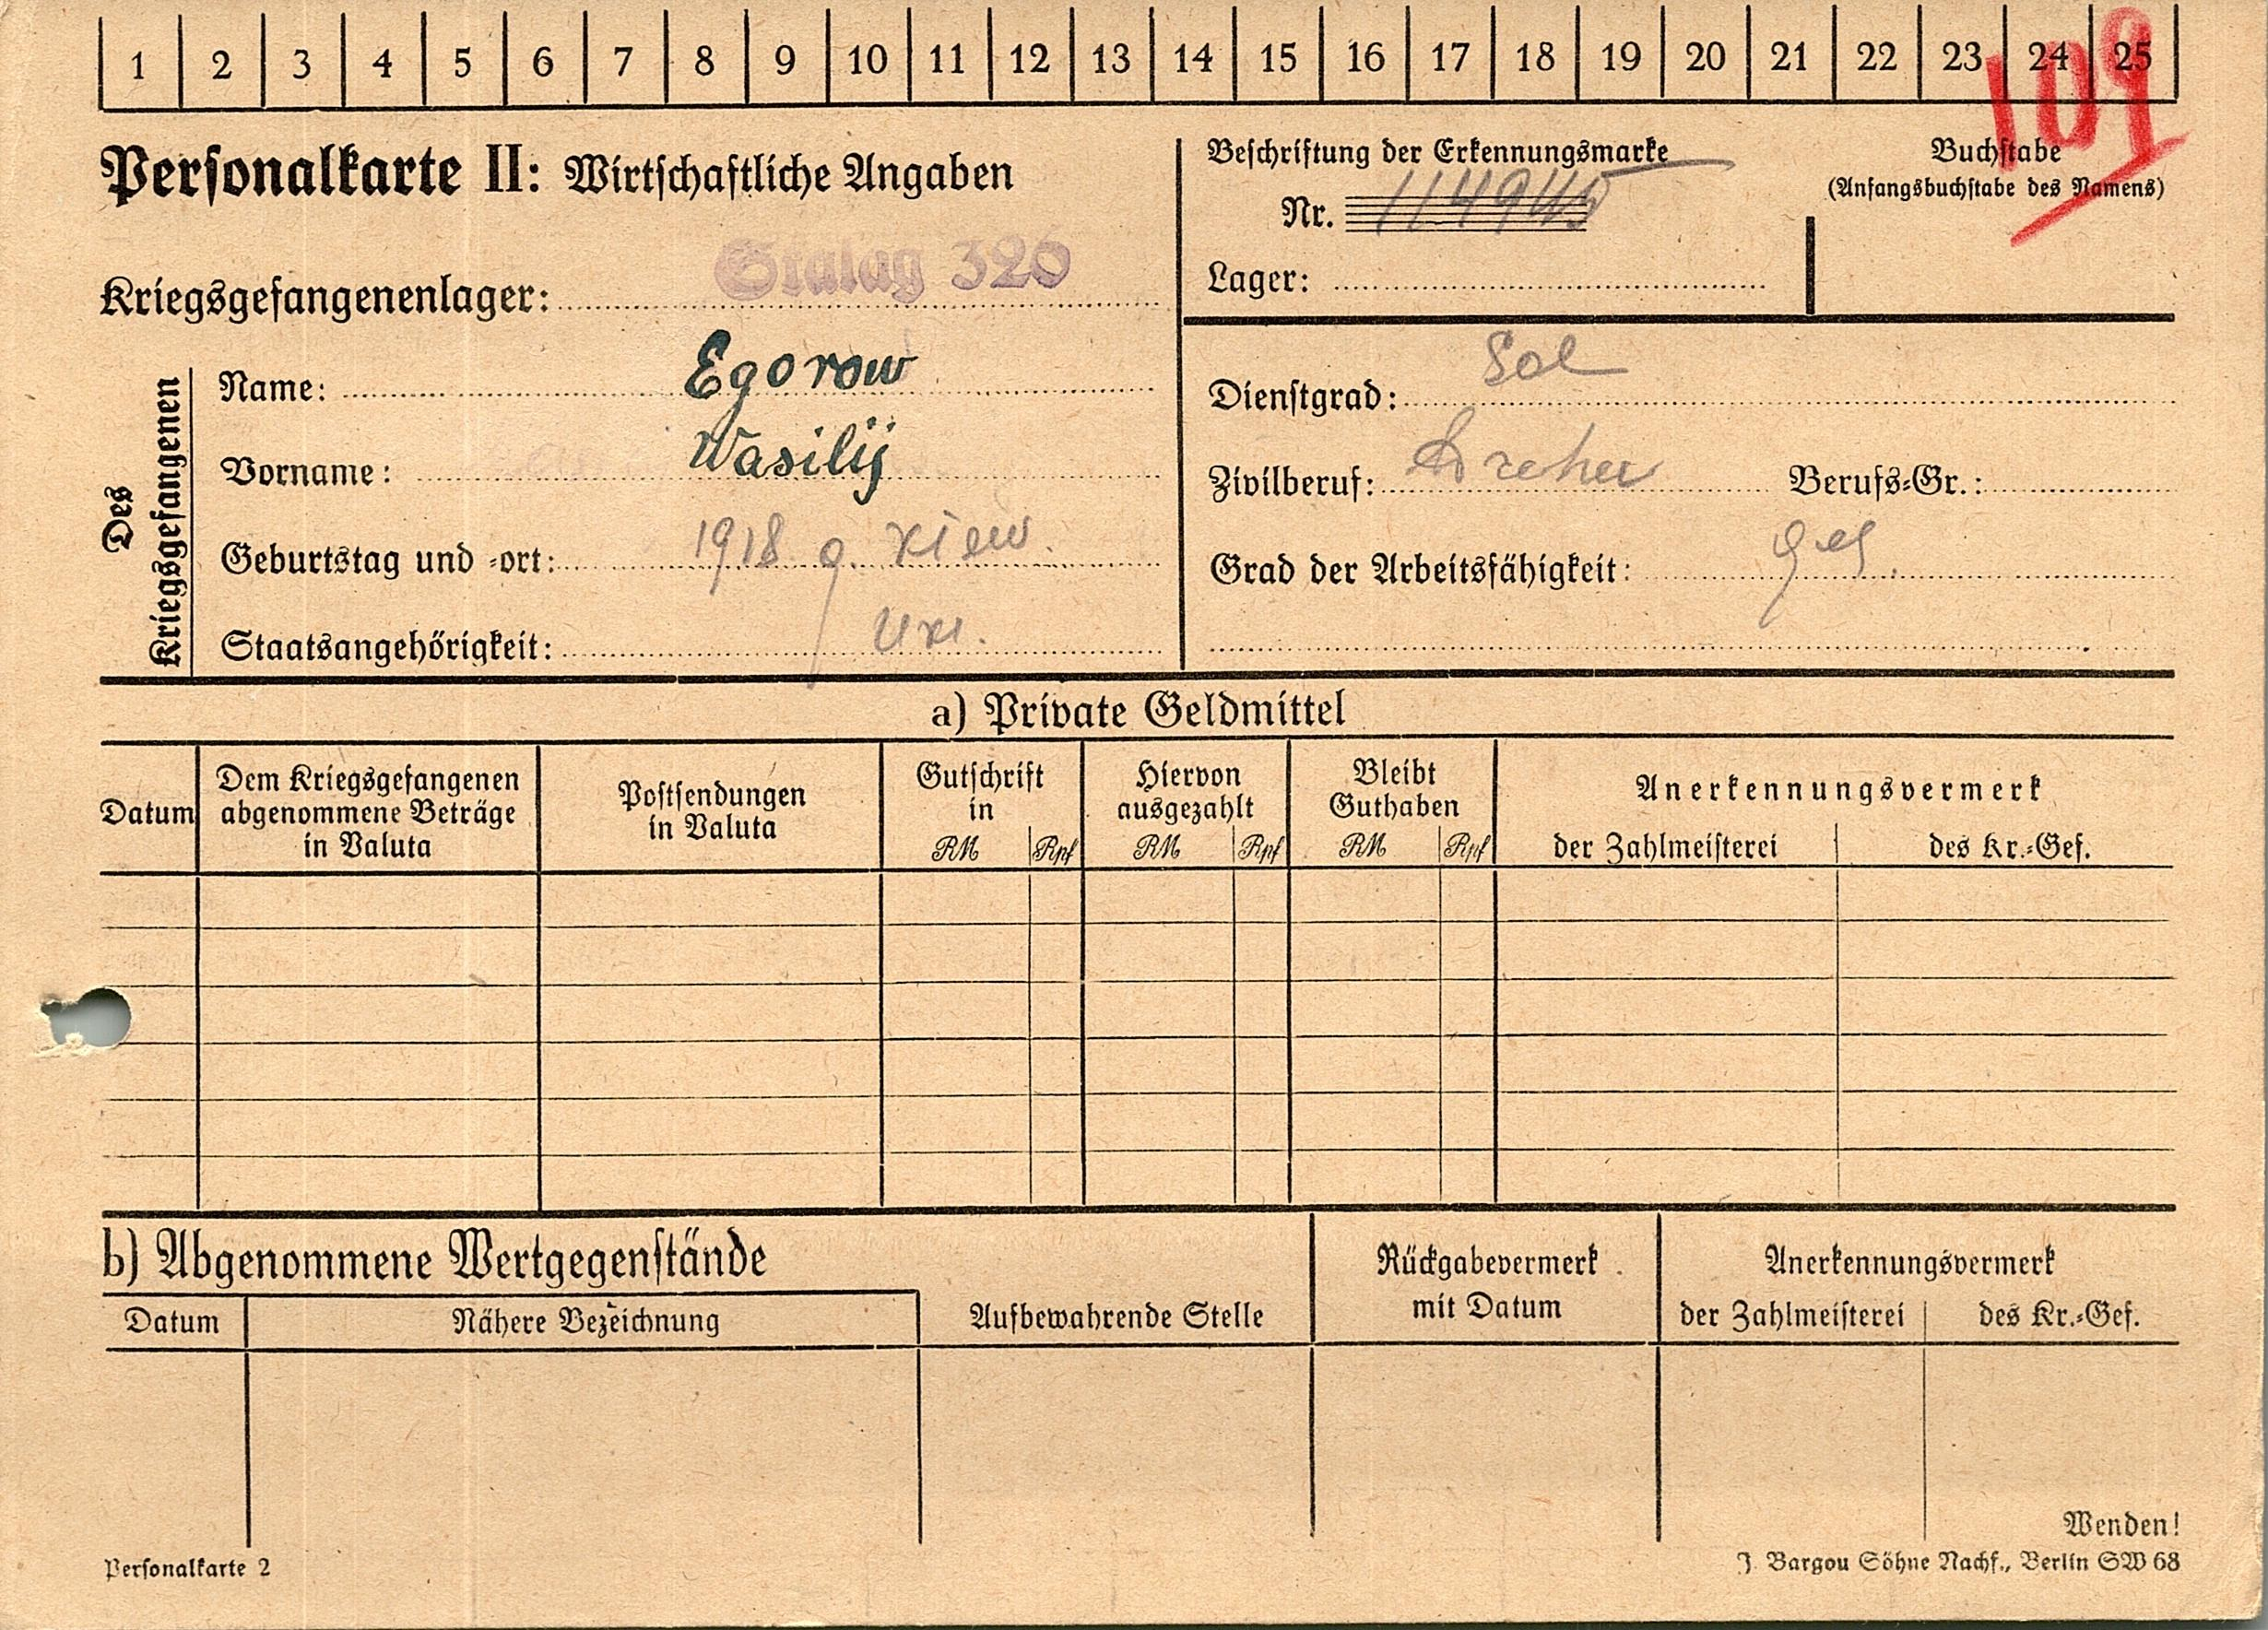 1 2 3 4 5 6 7 8 9 10 11 12 13 14 15 16 17 18 19 20 21 22 23 24 25
109
Personalkarte II: Wirtschaftliche Angaben
Beschriftung der Erkennungsmarke
Nr. 114945
Lager:
Buchstabe
(Anfangsbuchstabe des Namens)
Kriegsgefangenenlager: Stalag 326
Des Kriegsgefangenen
Name: Egorow
Vorname: Wasilij
Geburtstag und -ort: 1918 g. Kiew.
Staatsangehörigkeit: Ukr.
Dienstgrad: Sol
Zivilberuf: Dreher Berufs-Gr.:
Grad der Arbeitsfähigkeit:
a) Private Geldmittel
Datum
Dem Kriegsgefangenen
abgenommene Beträge
in Valuta
Postsendungen
in Valuta
Gutschrift
in
RM Rpf
Hiervon
ausgezahlt
RM Rpf
Bleibt
Guthaben
RM Rpf
Anerkennungsvermerk
der Zahlmeisterei des Kr.-Gef.
b) Abgenommene Wertgegenstände
Datum Nähere Bezeichnung
Aufbewahrende Stelle
Rückgabevermerk
mit Datum
Anerkennungsvermerk
der Zahlmeisterei des Kr.-Gef.
Wenden!
Personalkarte 2
J. Bargou Söhne Nachf., Berlin SW 68